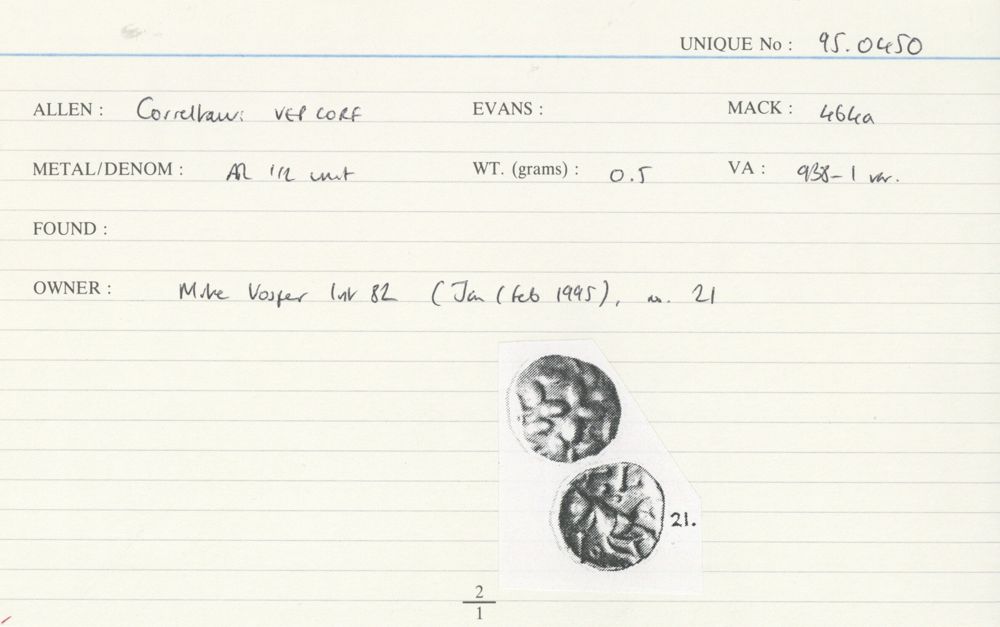 UNIQUE No : 95.0450
ALLEN : Corieltauvi VEP CORF EVANS : MACK : 464a
METAL/DENOM : AR 1/2 unit WT. (grams) : 0.5 VA : 938-1 var.
FOUND :
OWNER : Mike Vosper list 82 (Jan/Feb 1995), no. 21
21.
2
1